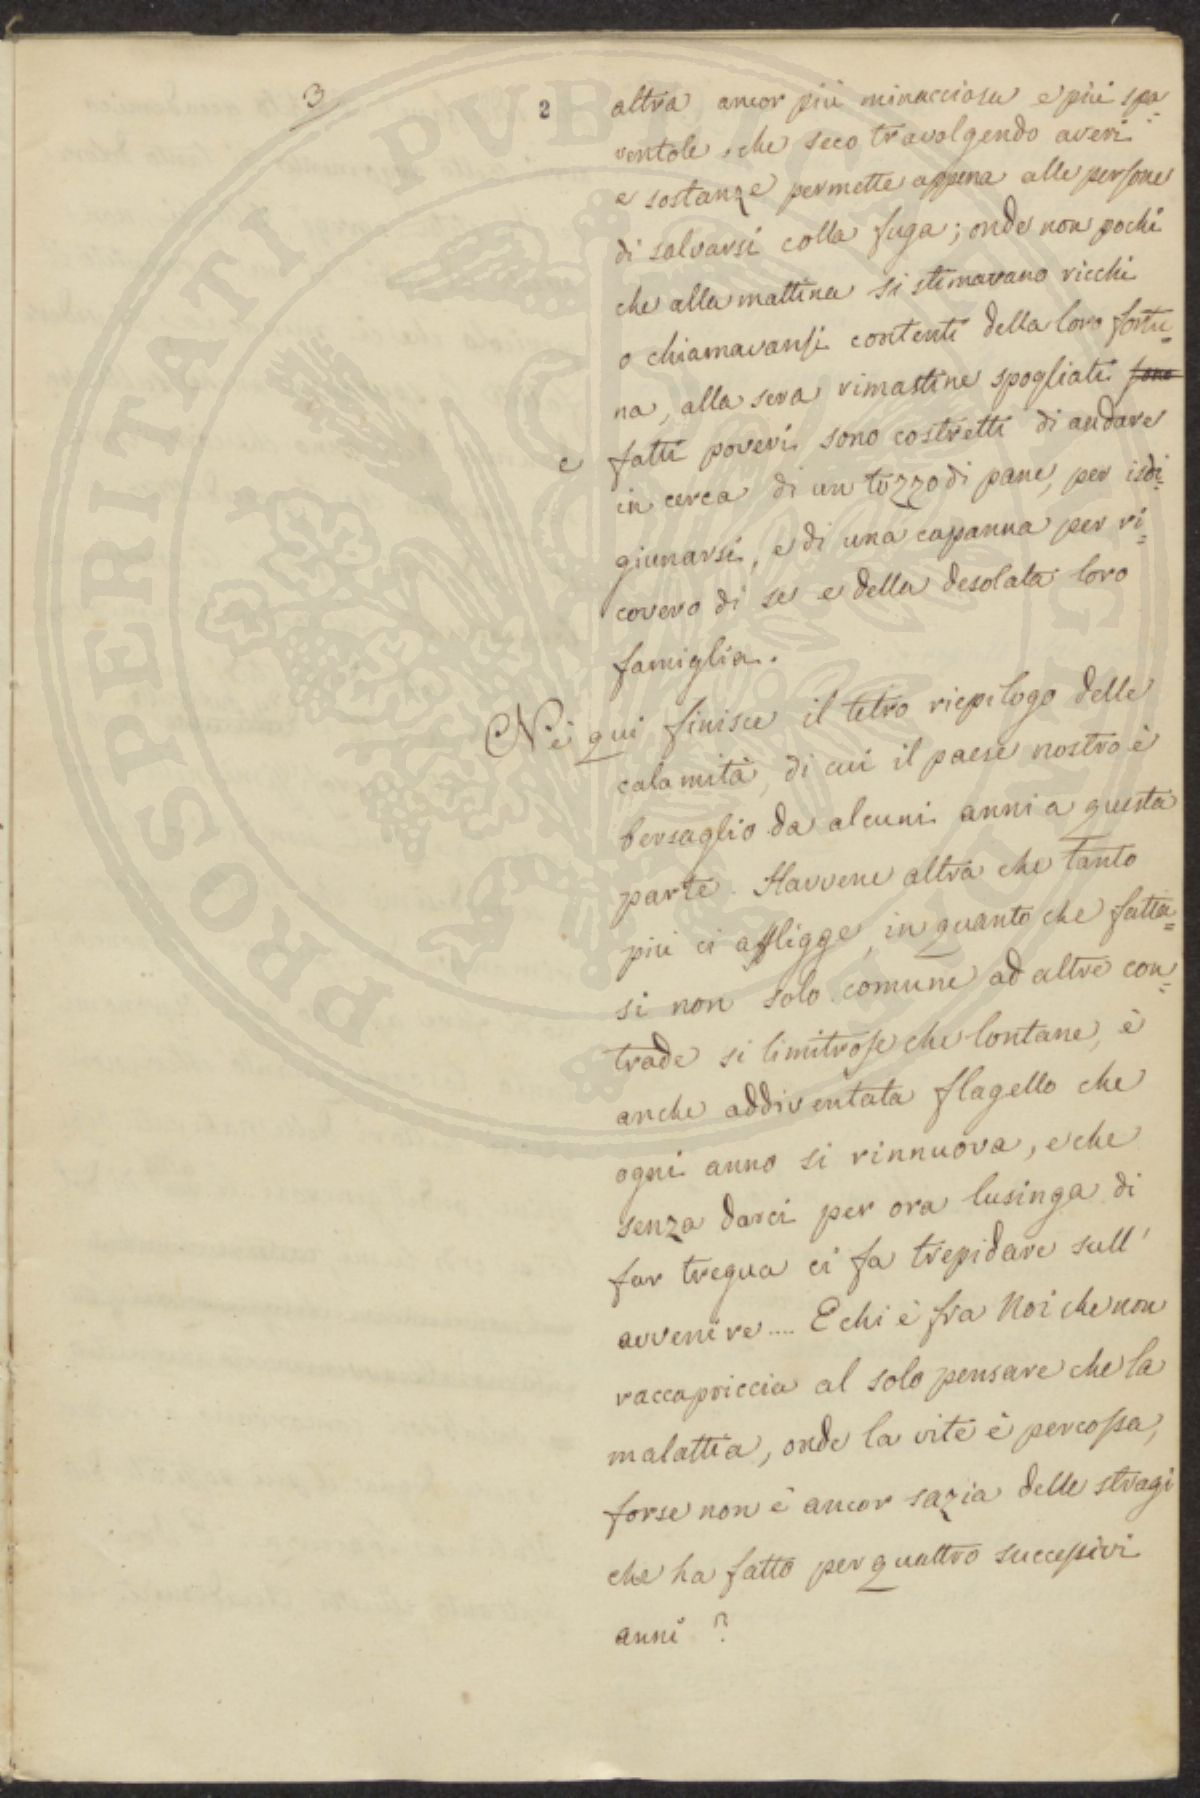 3
2
altra ancor più minacciosa e più spa=
ventole, che seco travolgendo averi
e sostanze permette appena alle persone
di salvarsi colla fuga; onde non pochi
che alla mattina si stimavano ricchi
o chiamavansi contenti della loro fortu=
na, alla sera rimastine spogliati sono
e fatti poveri sono costretti di andare
in cerca di un tozzo di pane, per isdi=
giunarsi, e di una capanna per ri=
covero di se e della desolata loro
famiglia.
Nè qui finisce il tetro riepilogo delle
calamità, di cui il paese nostro è
bersaglio da alcuni anni a questa
parte. Havvene altra che tanto
più ci affligge, in quanto che fatta=
si non solo comune ad altre con=
trade si limitrofe che lontane, è
anche addiventata flagello che
ogni anno si rinnuova, e che
senza darci per ora lusinga di
far tregua ci fa trepidare sull'
avvenire.... E chi è fra Noi che non
raccapriccia al solo pensare che la
malattia, onde la vite è percossa,
forse non è ancor sazia delle stragi
che ha fatto per quattro successivi
anni?
PROSPERITATI PVBLICAE